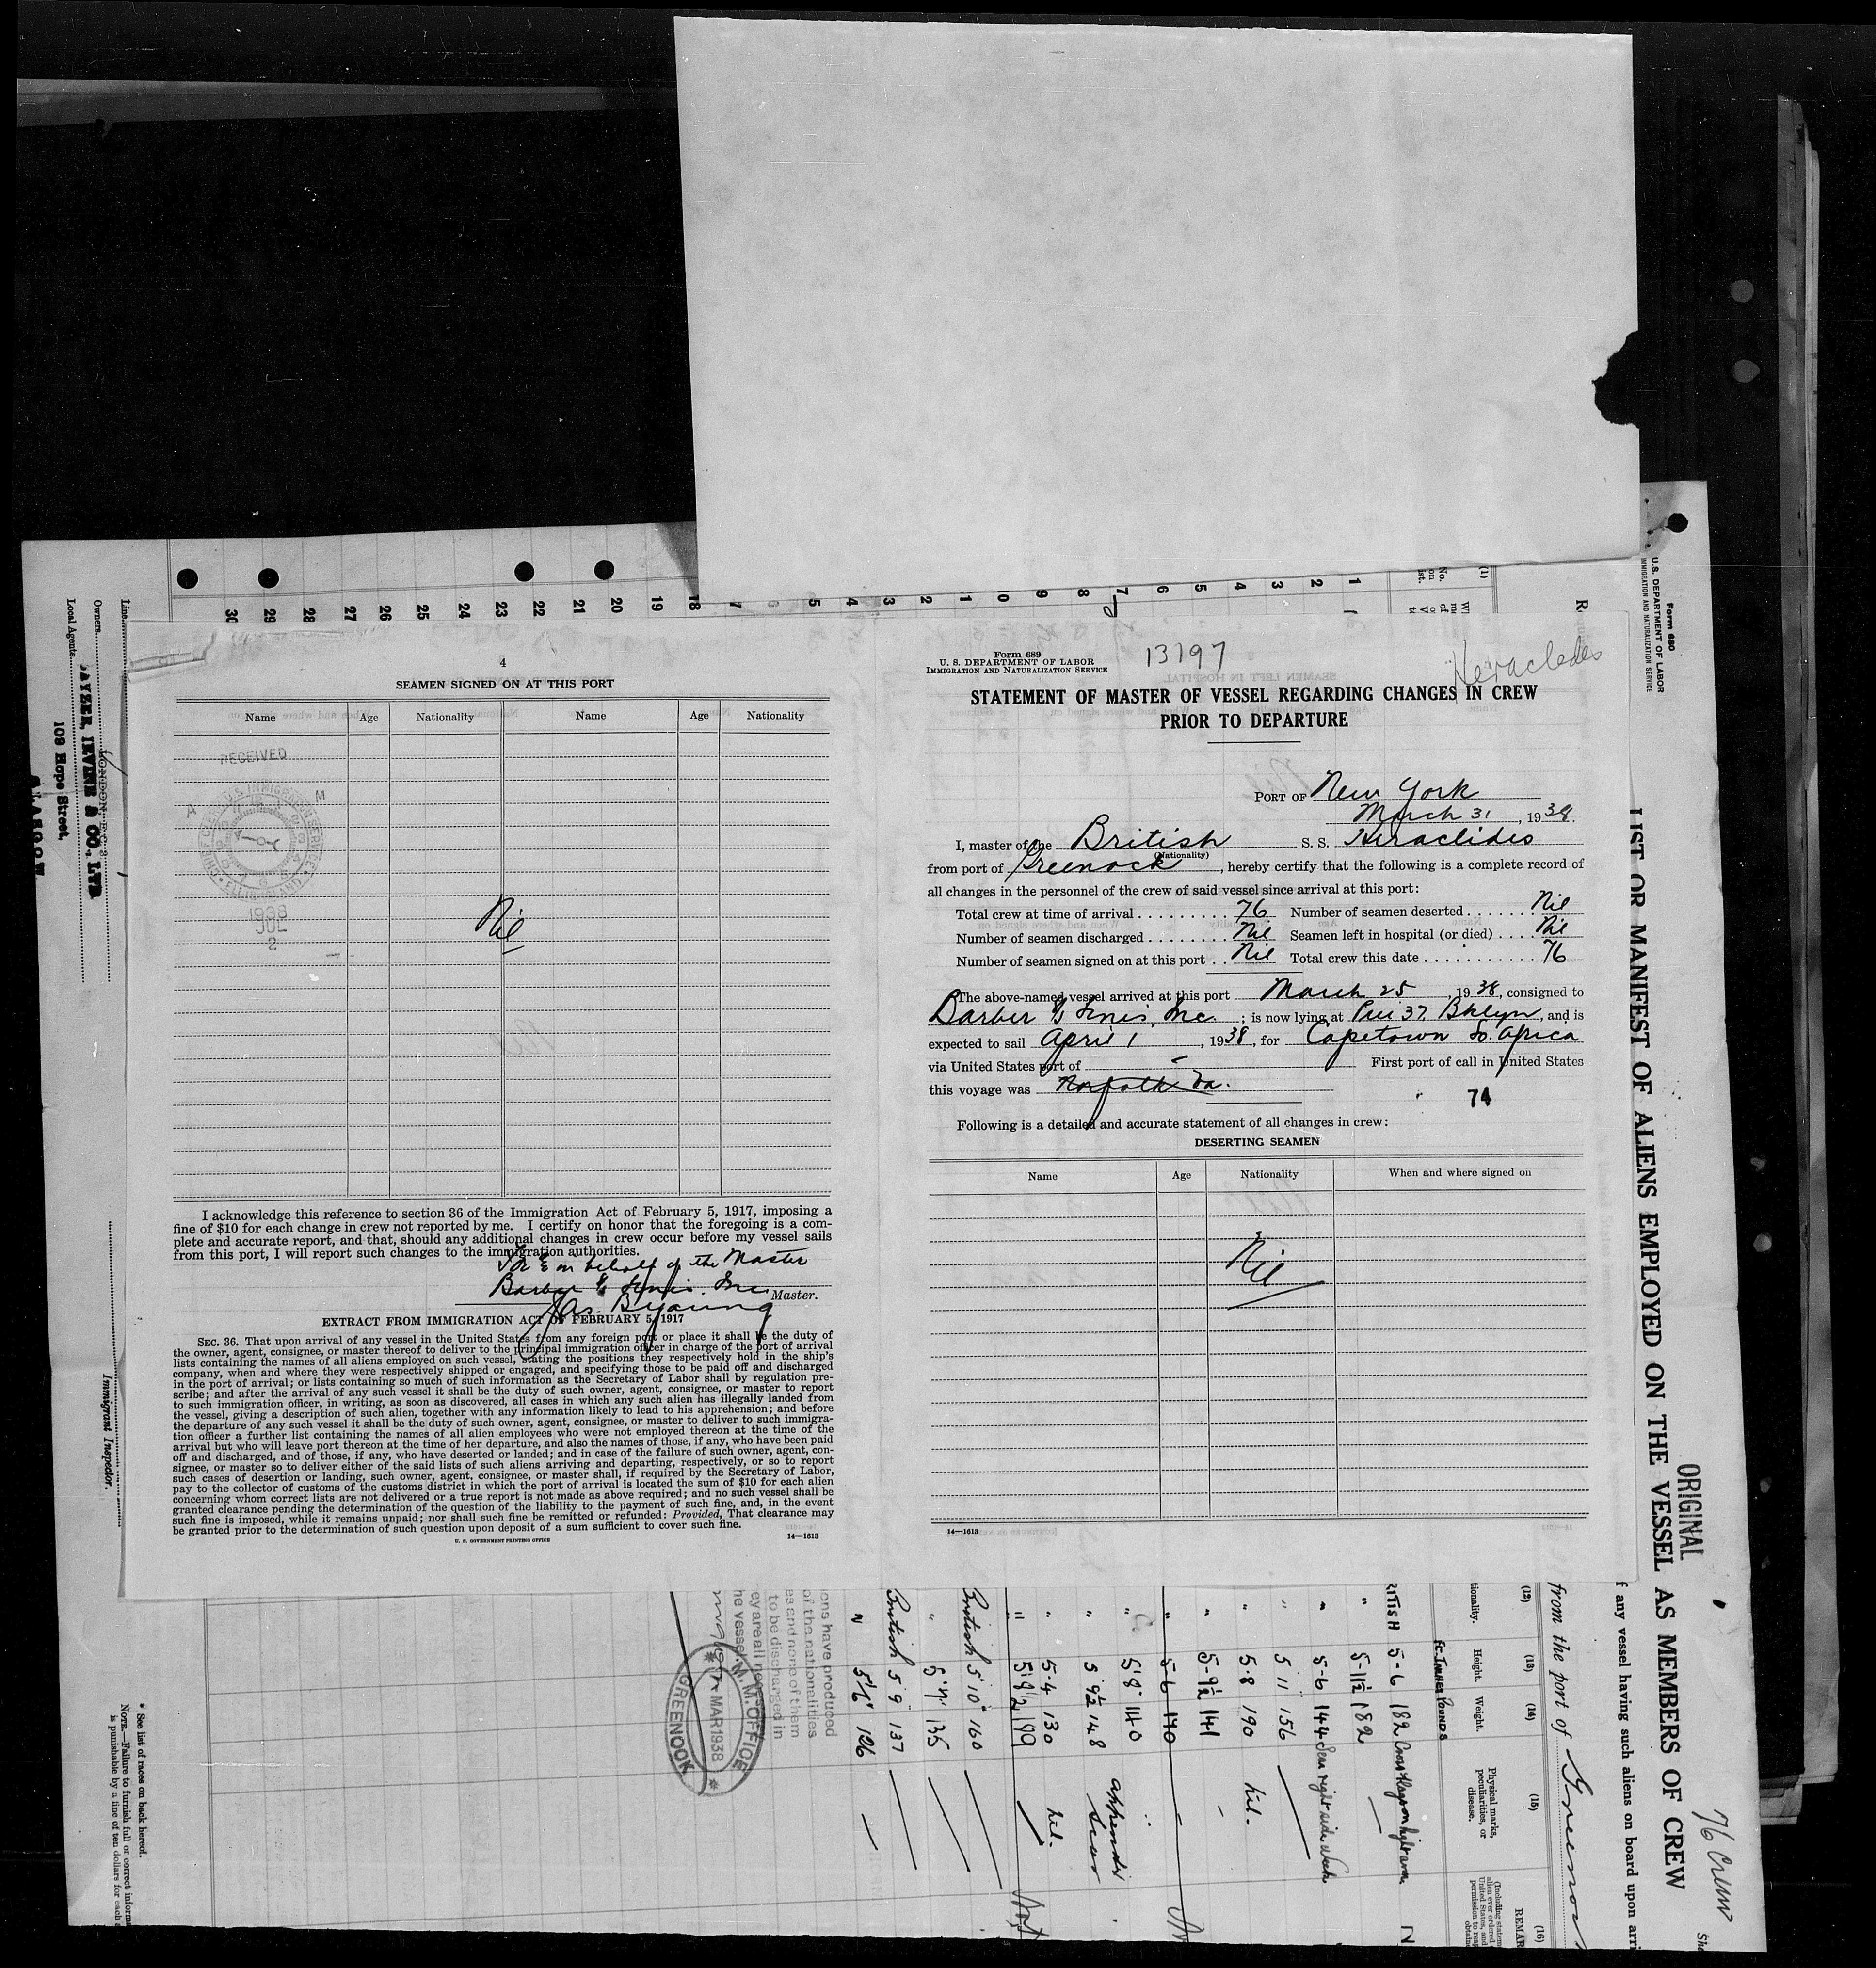 4
SEAMEN SIGNED ON AT THIS PORT
Name Age Nationality Name Age Nationality
RECEIVED
A M
1938
JUL
2
Nil
I acknowledge this reference to section 36 of the Immigration Act of February 5, 1917, imposing a
fine of $10 for each change in crew not reported by me. I certify on honor that the foregoing is a com-
plete and accurate report, and that, should any additional changes in crew occur before my vessel sails
from this port, I will report such changes to the immigration authorities.
on behalf of the Master
Master.
EXTRACT FROM IMMIGRATION ACT OF FEBRUARY 5, 1917
SEC. 36. That upon arrival of any vessel in the United States from any foreign port or place it shall be the duty of
the owner, agent, consignee, or master thereof to deliver to the principal immigration officer in charge of the port of arrival
lists containing the names of all aliens employed on such vessel, stating the positions they respectively hold in the ship's
company, when and where they were respectively shipped or engaged, and specifying those to be paid off and discharged
in the port of arrival; or lists containing so much of such information as the Secretary of Labor shall by regulation pre-
scribe; and after the arrival of any such vessel it shall be the duty of such owner, agent, consignee, or master to report
to such immigration officer, in writing, as soon as discovered, all cases in which any such alien has illegally landed from
the vessel, giving a description of such alien, together with any information likely to lead to his apprehension; and before
the departure of any such vessel it shall be the duty of such owner, agent, consignee, or master to deliver to such immigra-
tion officer a further list containing the names of all alien employees who were not employed thereon at the time of the
arrival but who will leave port thereon at the time of her departure, and also the names of those, if any, who have been paid
off and discharged, and of those, if any, who have deserted or landed; and in case of the failure of such owner, agent, con-
signee, or master so to deliver either of the said lists of such aliens arriving and departing, respectively, or so to report
such cases of desertion or landing, such owner, agent, consignee, or master shall, if required by the Secretary of Labor,
pay to the collector of customs of the customs district in which the port of arrival is located the sum of $10 for each alien
concerning whom correct lists are not delivered or a true report is not made as above required; and no such vessel shall be
granted clearance pending the determination of the question of the liability to the payment of such fine, and, in the event
such fine is imposed, while it remains unpaid; nor shall such fine be remitted or refunded: Provided, That clearance may
be granted prior to the determination of such question upon deposit of a sum sufficient to cover such fine.
U. S. GOVERNMENT PRINTING OFFICE 14—1613
Form 689
U. S. DEPARTMENT OF LABOR
IMMIGRATION AND NATURALIZATION SERVICE
13797
Heraclides
STATEMENT OF MASTER OF VESSEL REGARDING CHANGES IN CREW
PRIOR TO DEPARTURE
PORT OF New York
March 31, 1938.
I, master of the British S. S. Heraclides
(Nationality)
from port of Greenock, hereby certify that the following is a complete record of
all changes in the personnel of the crew of said vessel since arrival at this port:
Total crew at time of arrival 76 Number of seamen deserted Nil
Number of seamen discharged Nil Seamen left in hospital (or died) Nil
Number of seamen signed on at this port Nil Total crew this date 76
The above-named vessel arrived at this port March 25 1938, consigned to
Barber Inc. ; is now lying at Pier 37, Bklyn, and is
expected to sail April 1, 1938, for Capetown So. Africa
via United States port of - First port of call in United States
this voyage was Norfolk Va.
74
Following is a detailed and accurate statement of all changes in crew:
DESERTING SEAMEN
Name Age Nationality When and where signed on
Nil
14—1613
Form 680
U.S. DEPARTMENT OF LABOR
IMMIGRATION AND NATURALIZATION SERVICE
LIST OR MANIFEST OF ALIENS EMPLOYED ON THE VESSEL AS MEMBERS OF CREW
ORIGINAL
76 Crew
f any vessel having such aliens on board upon arri
from the port of Greenock
(12) (13) (14) (15) (16)
Height. Weight. Physical marks, peculiarities, or disease.
5-6 182
5-11½ 182
5-6 144
5 11 156
5.8 190
5-9½ 141
5-6 140
5'8" 140
5 9½ 148 appendix scar
5.4 130
British 5'10" 160
5'7" 135
British 5'9" 137
5'6" 126
M.M. OFFICE
MAR 1938
GREENOCK
Line
Owners
Local Agents
109 Hope Street,
Immigrant Inspector.
* See list of races on back hereof.
NOTE.—Failure to furnish full or correct informa
is punishable by a fine of ten dollars for each